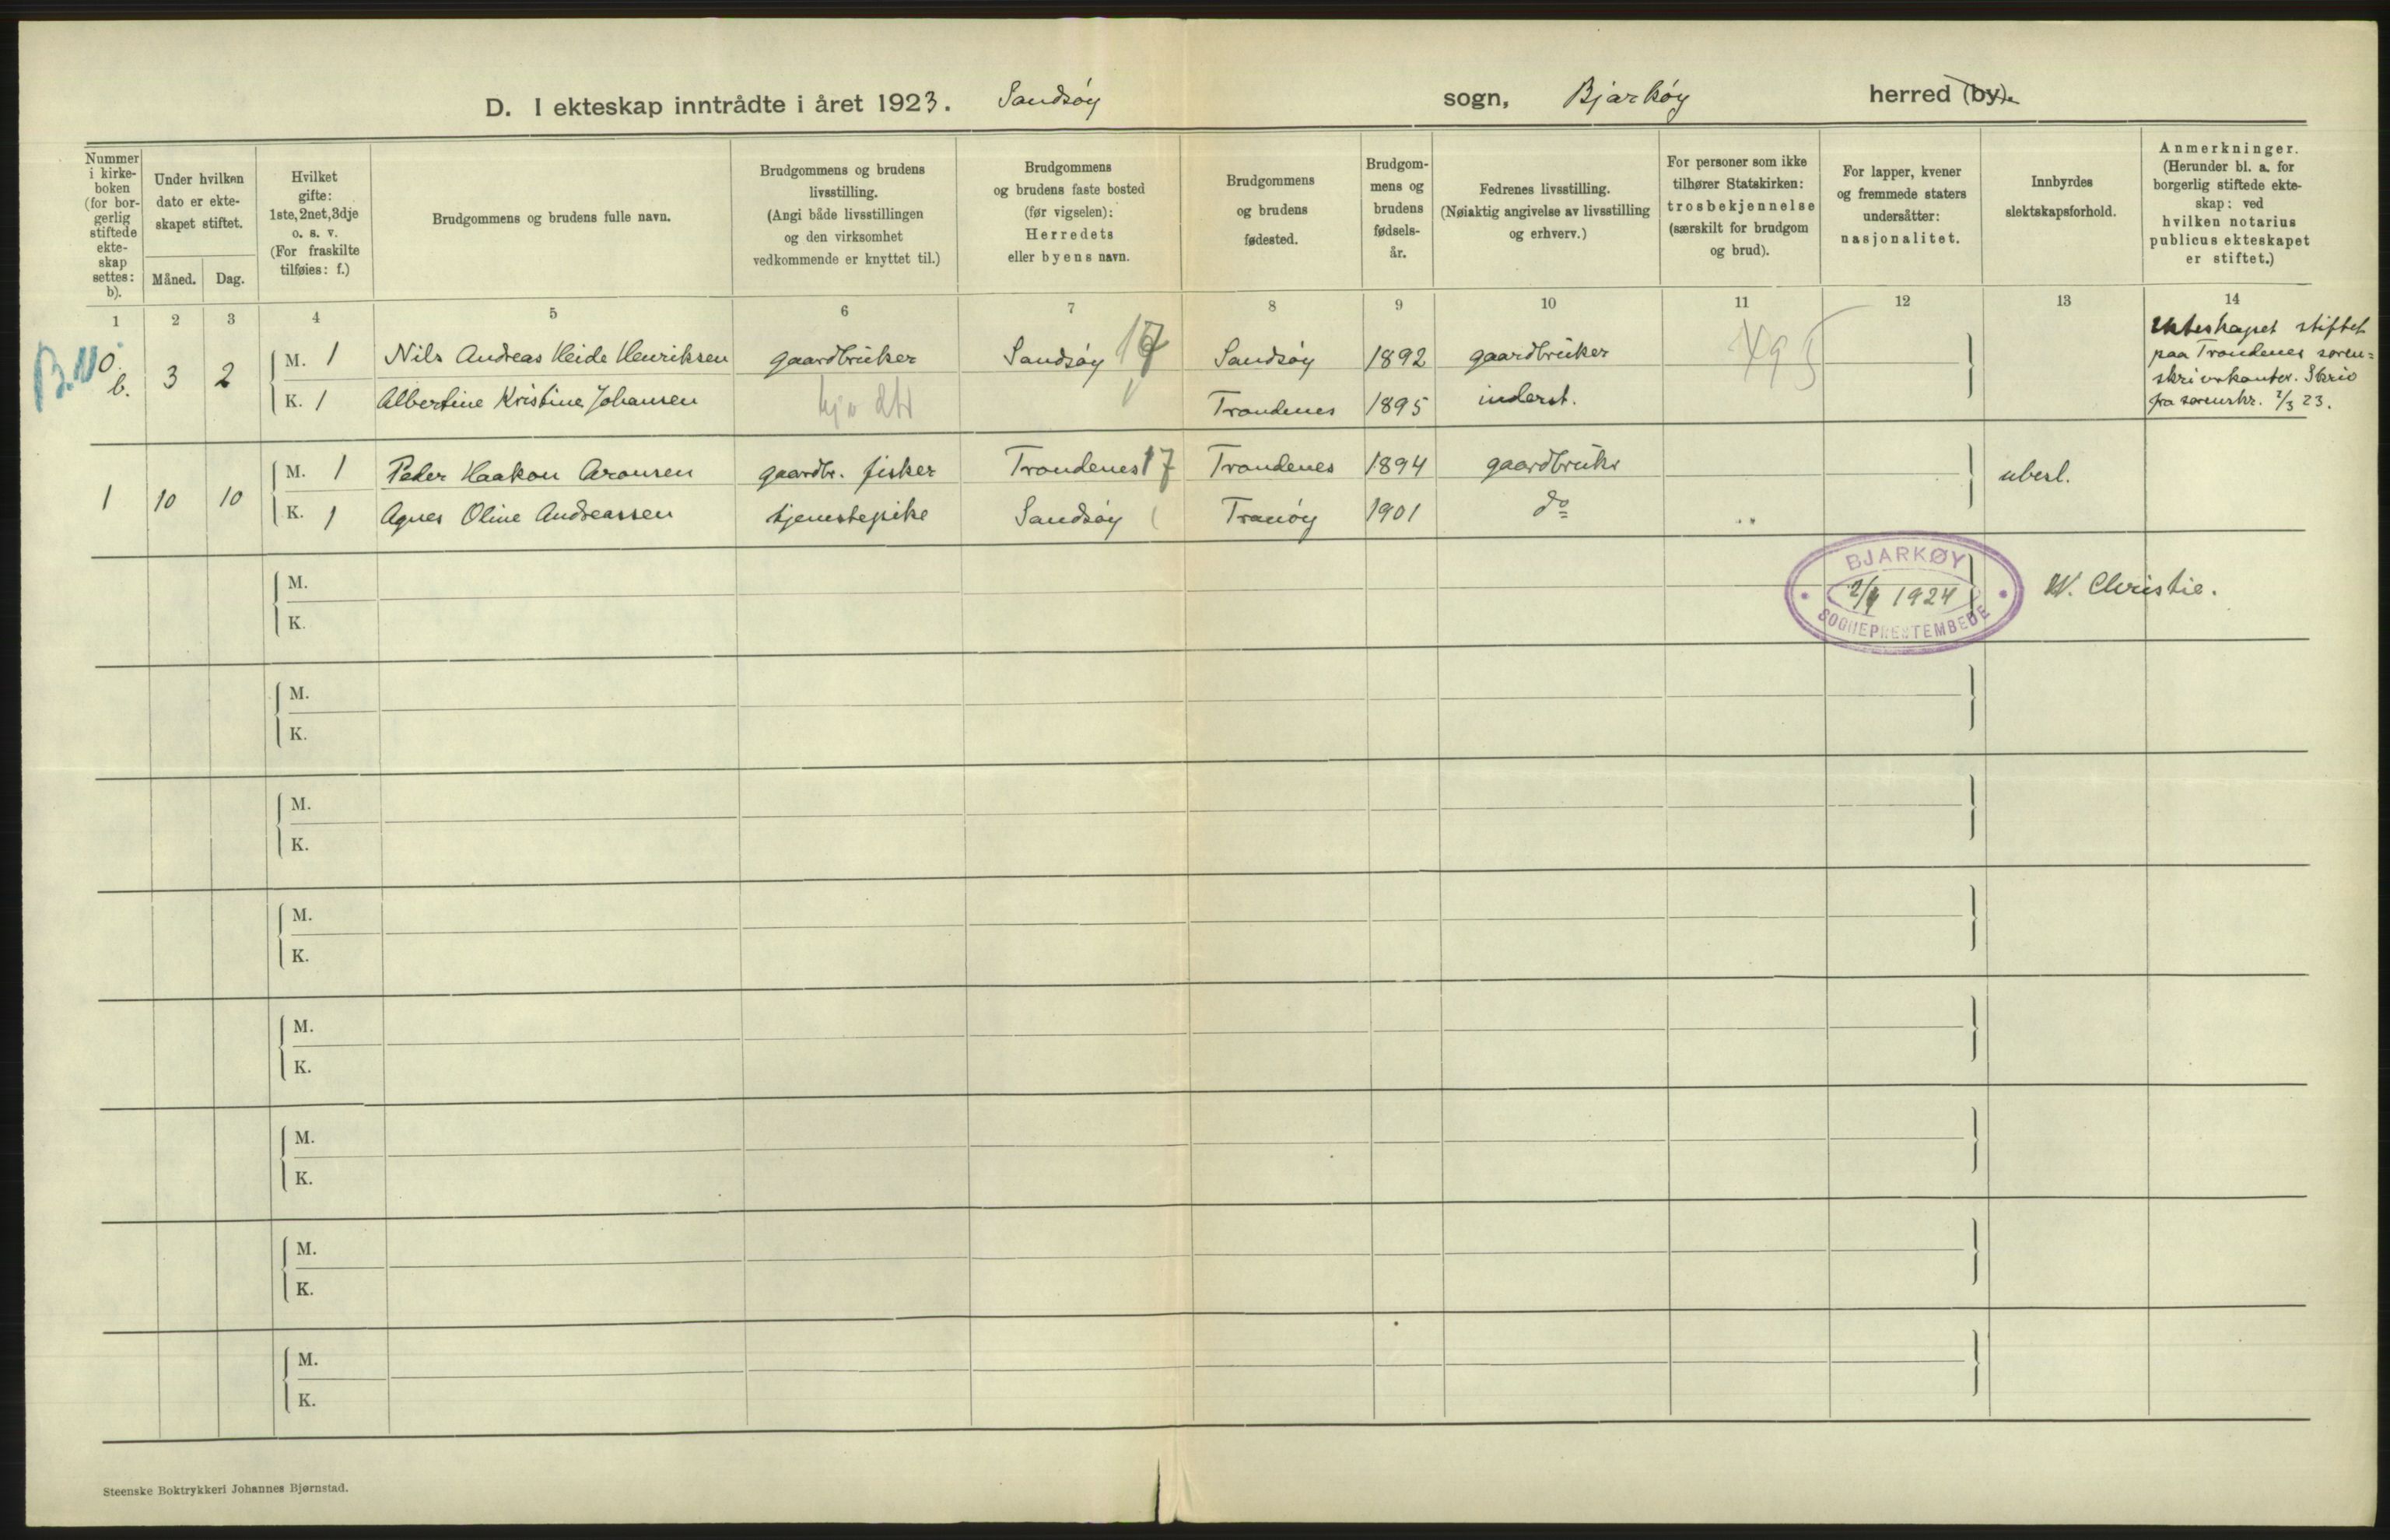 D. I ekteskap inntrådte i året 1923. Sandsøy sogn, Bjarkøy herred (by).
Nummer
i kirke-
boken
(for bor-
gerlig
stiftede
ekte-
skap
settes:
b).
Under hvilken
dato er ekte-
skapet stiftet.
Måned. Dag.
Hvilket
gifte:
1ste, 2net, 3dje
o. s. v.
(For fraskilte
tilføies: f.)
Brudgommens og brudens fulle navn.
Brudgommens og brudens
livsstilling.
(Angi både livsstillingen
og den virksomhet
vedkommende er knyttet til.)
Brudgommens
og brudens faste bosted
(før vigselen):
Herredets
eller byens navn.
Brudgommens
og brudens
fødested.
Brudgom-
mens og
brudens
fødsels-
år.
Fedrenes livsstilling.
(Nøiaktig angivelse av livsstilling
og erhverv.)
For personer som ikke
tilhører Statskirken:
trosbekjennelse
(særskilt for brudgom
og brud).
For lapper, kvener
og fremmede staters
undersåtter:
nasjonalitet.
Innbyrdes
slektskapsforhold.
Anmerkninger.
(Herunder bl. a. for
borgerlig stiftede ekte-
skap: ved
hvilken notarius
publicus ekteskapet
er stiftet.)
1 2 3 4 5 6 7 8 9 10 11 12 13 14
b. 3 2
M. 1 Nils Andreas Heide Henriksen gaardbruker Sandsøy 17 Sandsøy 1892 gaardbruker
K. 1 Albertine Kristine Johansen Trondenes 1895 inderst.
Ekteskapet stiftet
paa Trondenes soren=
skriverkontor. Skriv
fra sorenskr. 2/3 23.
1 10 10
M. 1 Peder Haakon Aronsen gaardbr. fisker Trondenes 17 Trondenes 1894 gaardbruker
K. 1 Agnes Oline Andreassen tjenestepike Sandsøy Tranøy 1901 do
ubesl.
BJARKØY
2/4 1924
SOGNEPRESTEMBEDE
W. Christie.
M.
K.
M.
K.
M.
K.
M.
K.
M.
K.
M.
K.
M.
K.
M.
K.
Steenske Boktrykkeri Johannes Bjørnstad.